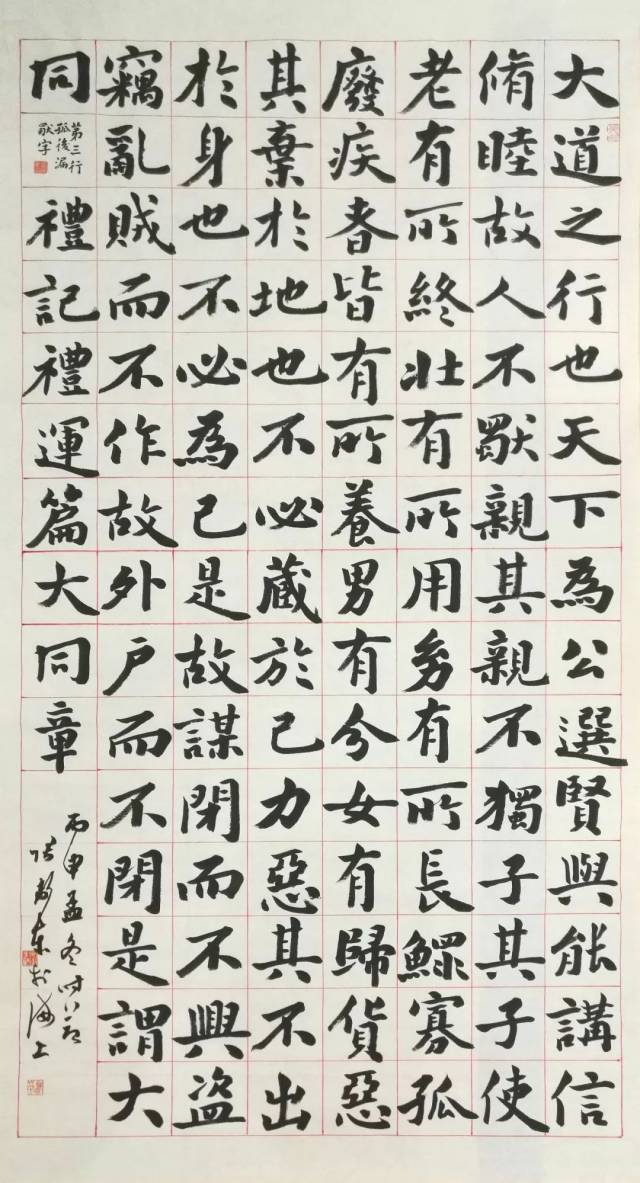 大道之行也天下為公選賢與能講信
脩睦故人不獨親其親不獨子其子使
老有所終壯有所用幼有所長鰥寡孤
廢疾者皆有所養男有分女有歸貨惡
其棄於地也不必藏於己力惡其不出
於身也不必為己是故謀閉而不興盜
竊亂賊而不作故外戶而不閉是謂大
同
第三行
孤後漏
獨字
禮記禮運篇大同章
丙申孟冬時
於海上